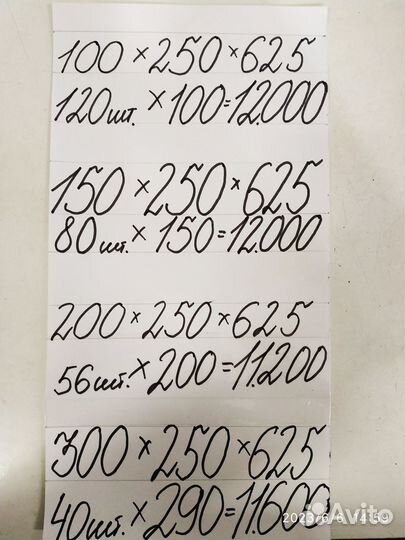 100 × 250 × 625
120шт. × 100 = 12.000
150 × 250 × 625
80шт. × 150 = 12.000
200 × 250 × 625
56шт. × 200 = 11.200
300 × 250 × 625
40шт. × 290 = 11.600
2023/6/6 14:59
Avito